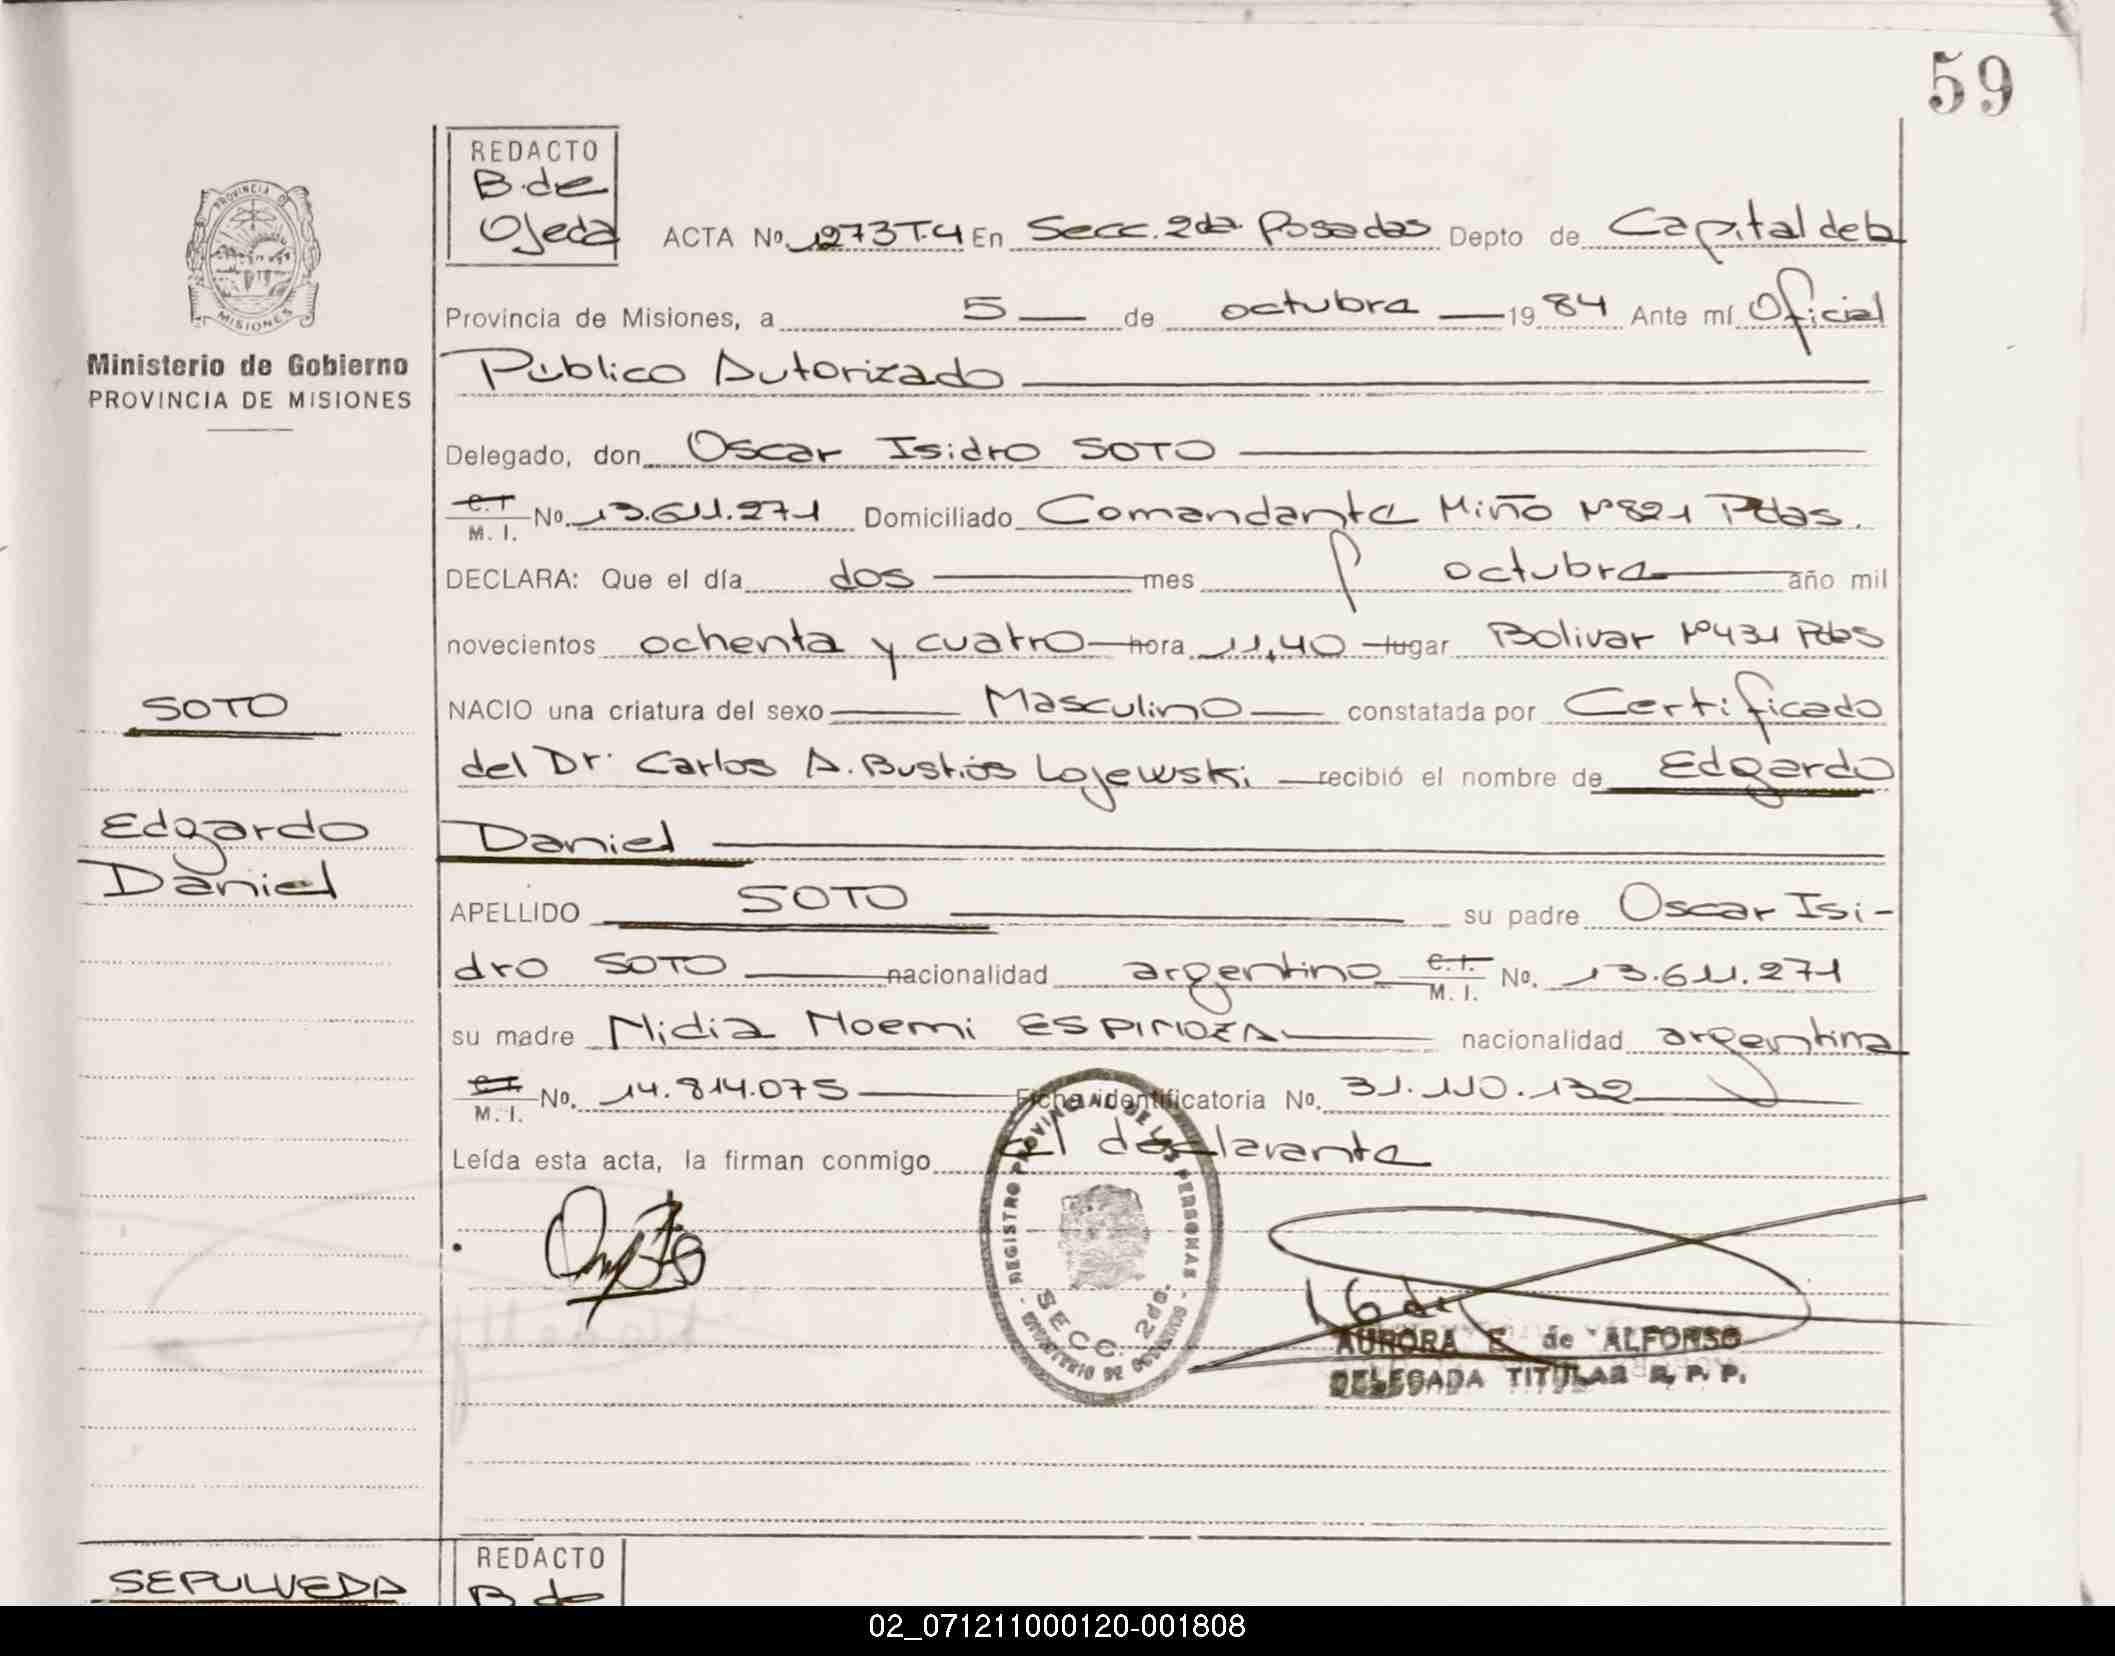 59
REDACTO
B. de
Ojeda
ACTA Nº 1273 T.4 En Secc. 2da. Posadas Depto de Capital de la
Provincia de Misiones, a 5 de octubre 1984 Ante mí Oficial
Público Autorizado
Delegado, don Oscar Isidro SOTO
C.I. M. I. Nº. 13.611.271 Domiciliado Comandante Miño Nº 821 Pdas.
DECLARA: Que el día dos mes octubre año mil
novecientos ochenta y cuatro hora 11,40 lugar Bolivar Nº 431 Pdas
NACIO una criatura del sexo Masculino constatada por Certificado
del Dr. Carlos A. Bustios Lojewski recibió el nombre de Edgardo
Daniel
APELLIDO SOTO su padre Oscar Isi-
dro SOTO nacionalidad argentino C.I. M. I. Nº. 13.611.271
su madre Nidia Noemi ESPINOZA nacionalidad argentina
C.I. M. I. Nº. 14.814.075 Ficha identificatoria Nº. 31.110.132
Leída esta acta, la firman conmigo el declarante
REGISTRO PROVINCIAL DE LAS PERSONAS
SECC. 2da.
MINISTERIO DE GOBIERNO
AURORA E. de ALFONSO
DELEGADA TITULAR R. P. P.
PROVINCIA DE
MISIONES
Ministerio de Gobierno
PROVINCIA DE MISIONES
SOTO
Edgardo
Daniel
SEPULVEDA
REDACTO
B. de
02_071211000120-001808